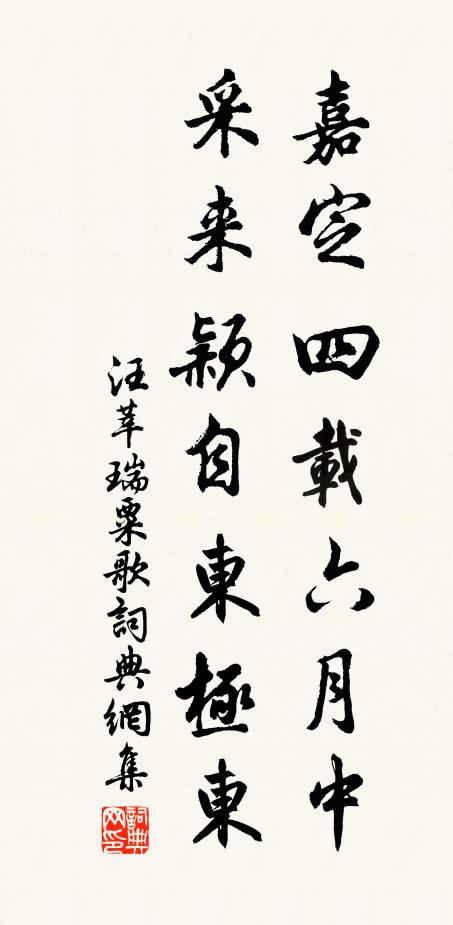 嘉定四載六月中
采来颖自東極東
汪莘瑞粟歌詞典網集
詞典网印